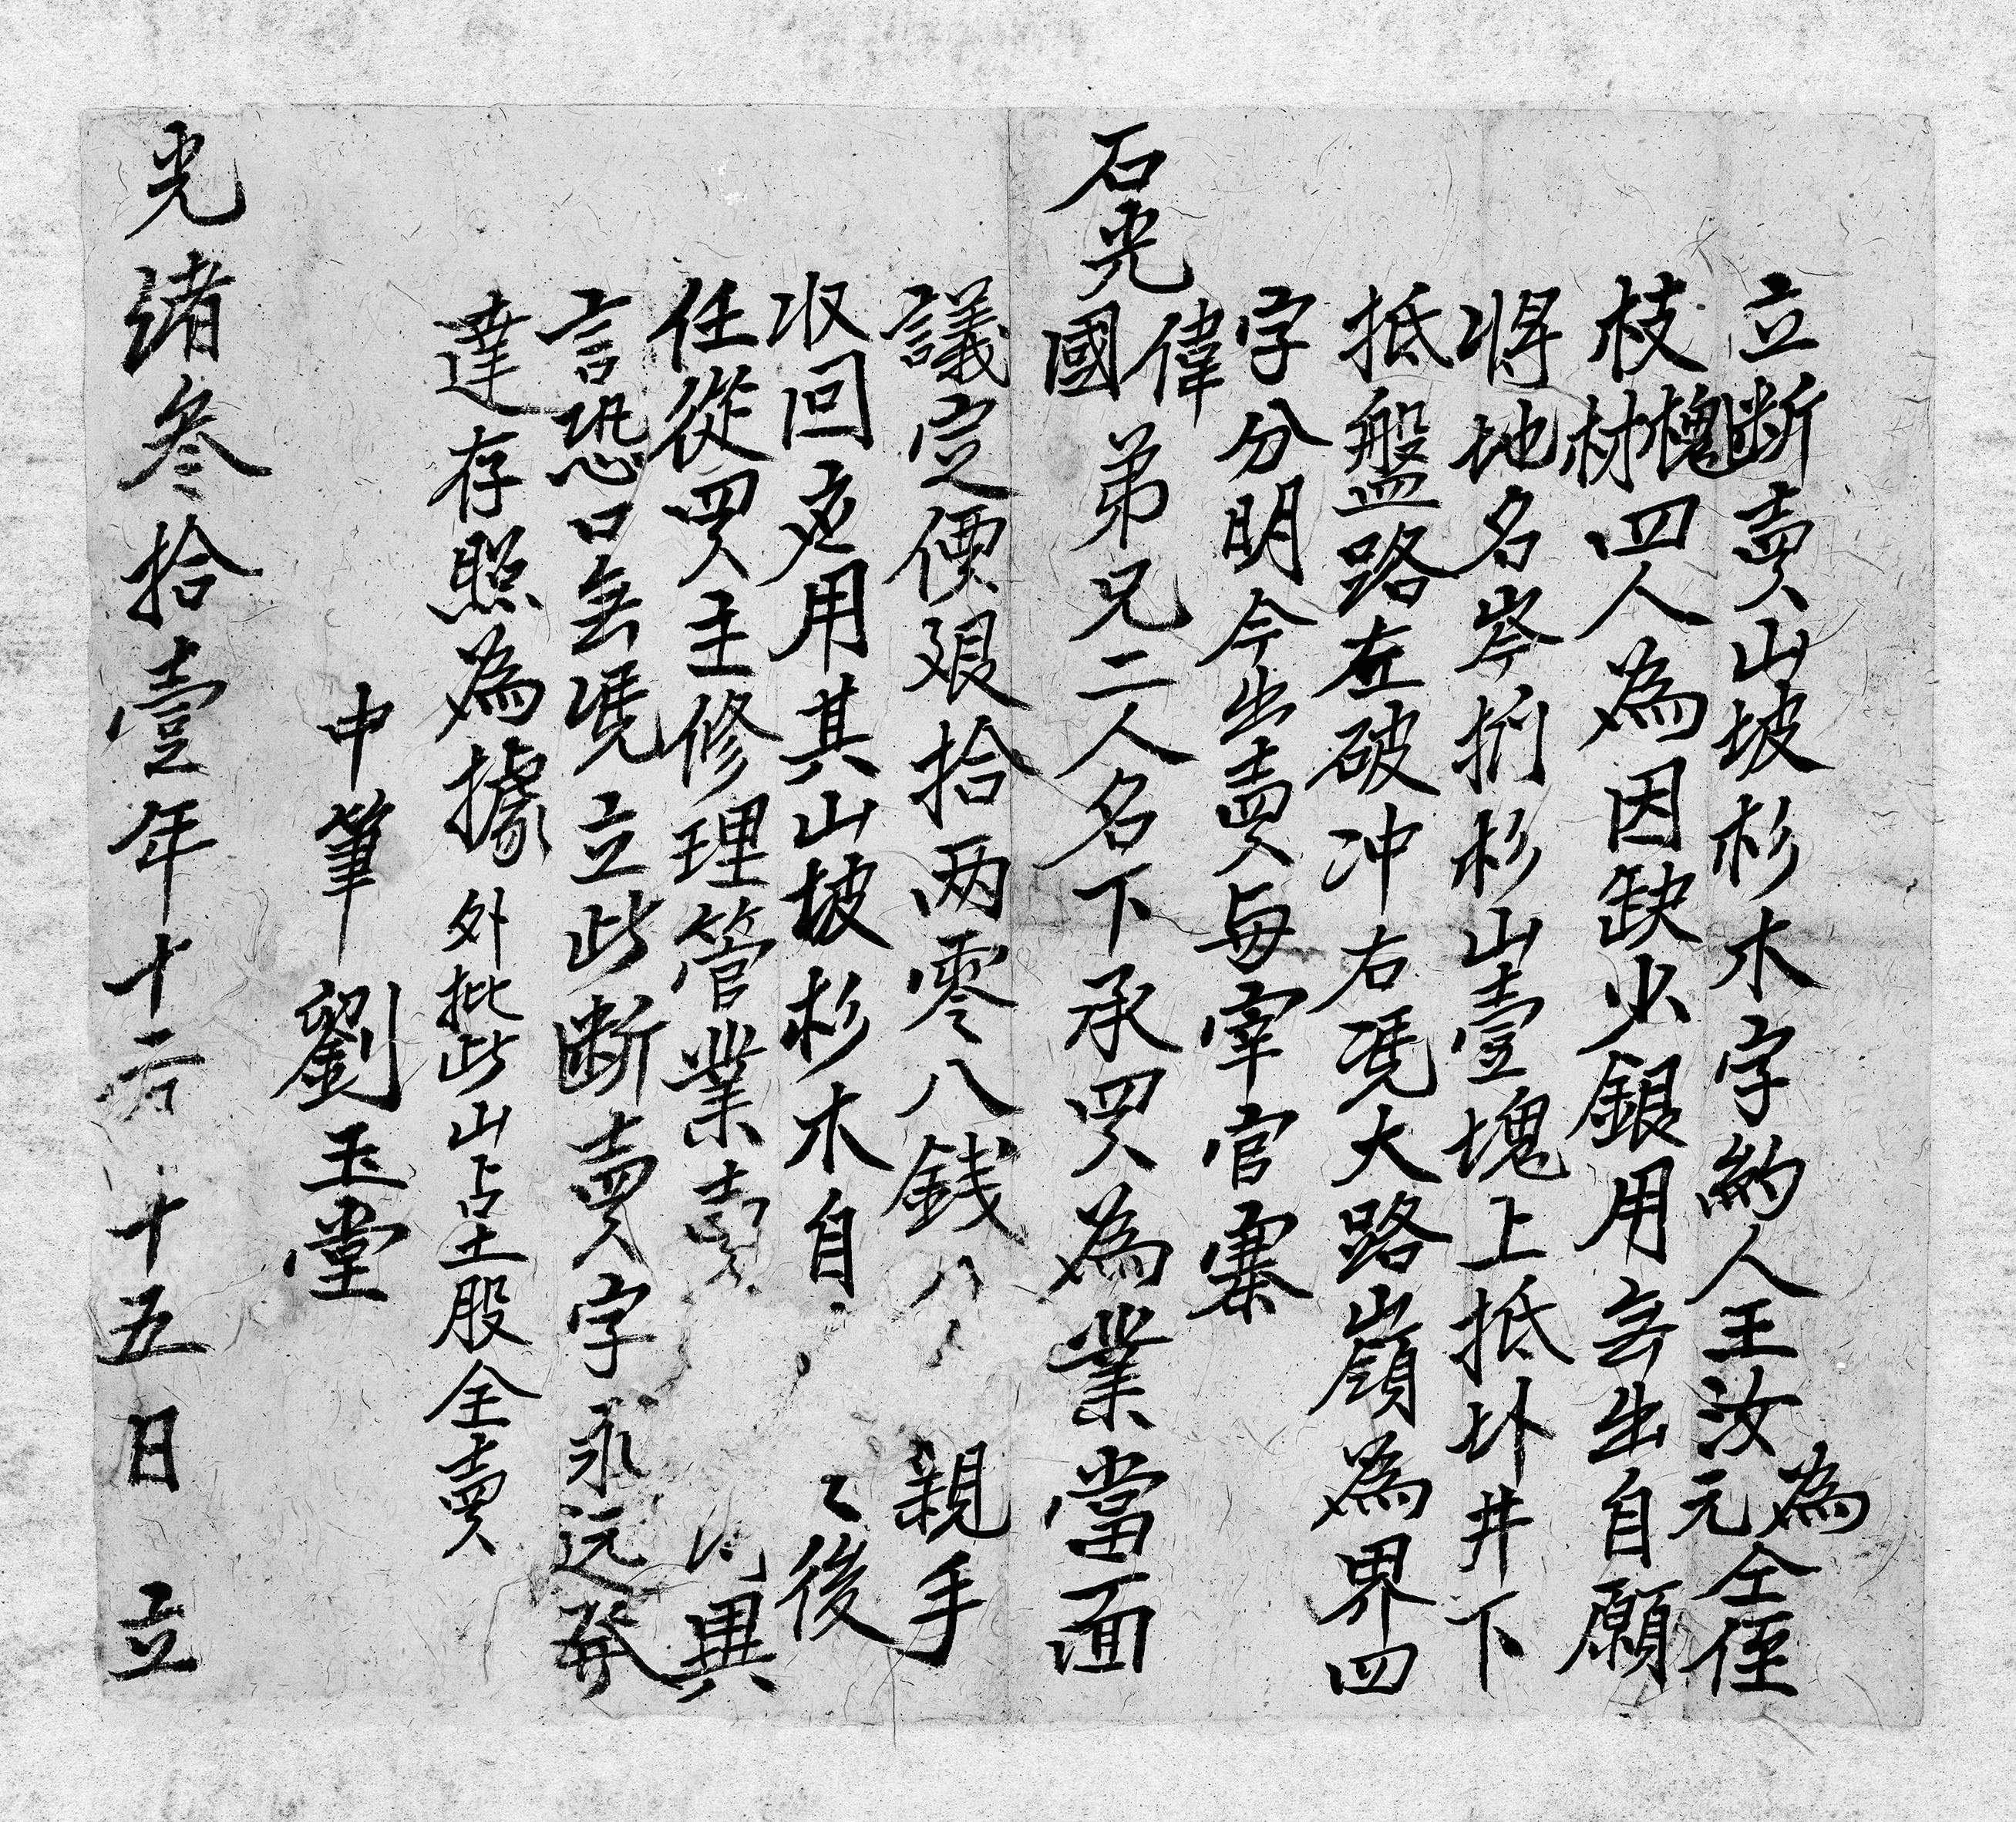 立断賣山坡杉木字約人王汝元為仝侄
枝材槐四人為因缺少銀用无出自願
將地名岑捌杉山壹塊上抵圤井下
抵盤路左破冲右凴大路嶺為界四
字分明今出賣與宰官寨
石光國偉弟兄二人名下承買為業當面
議定價艮拾两零八錢八 親手
收回應用其山坡杉木自 後
任從買主修理管業賣 異
言恐口無凴立此断賣字永远發
達存照為據 外批此山占显股全賣
中筆 劉玉堂
光绪叁拾壹年十二月十五日 立